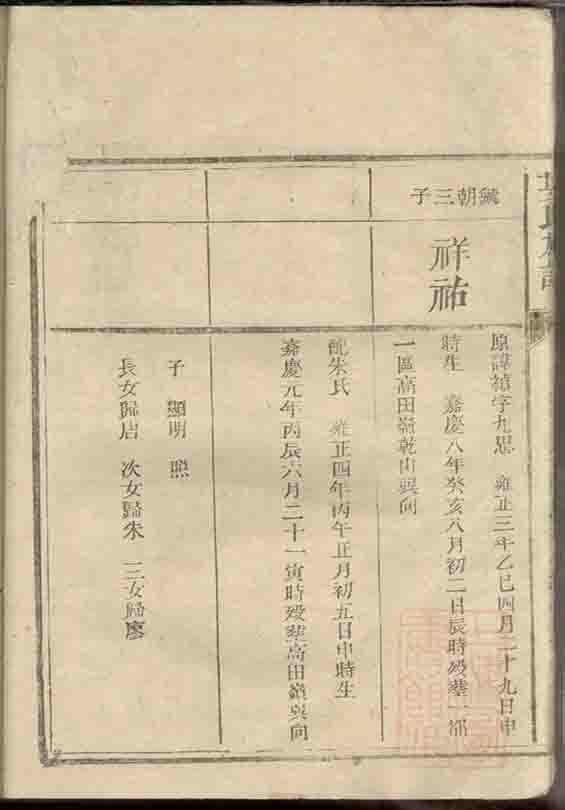 氏族譜
黻朝三子
祥祐
原諱禧字九思　雍正三年乙巳四月二十九日申
時生　嘉慶八年癸亥八月初二日辰時歿葬一都
一區高田嶺乾山巽向
配朱氏　雍正四年丙午正月初五日申時生
嘉慶元年丙辰六月二十一寅時歿葬高田嶺巽向
子　顯明　照
長女歸唐　次女歸朱　三女歸廖